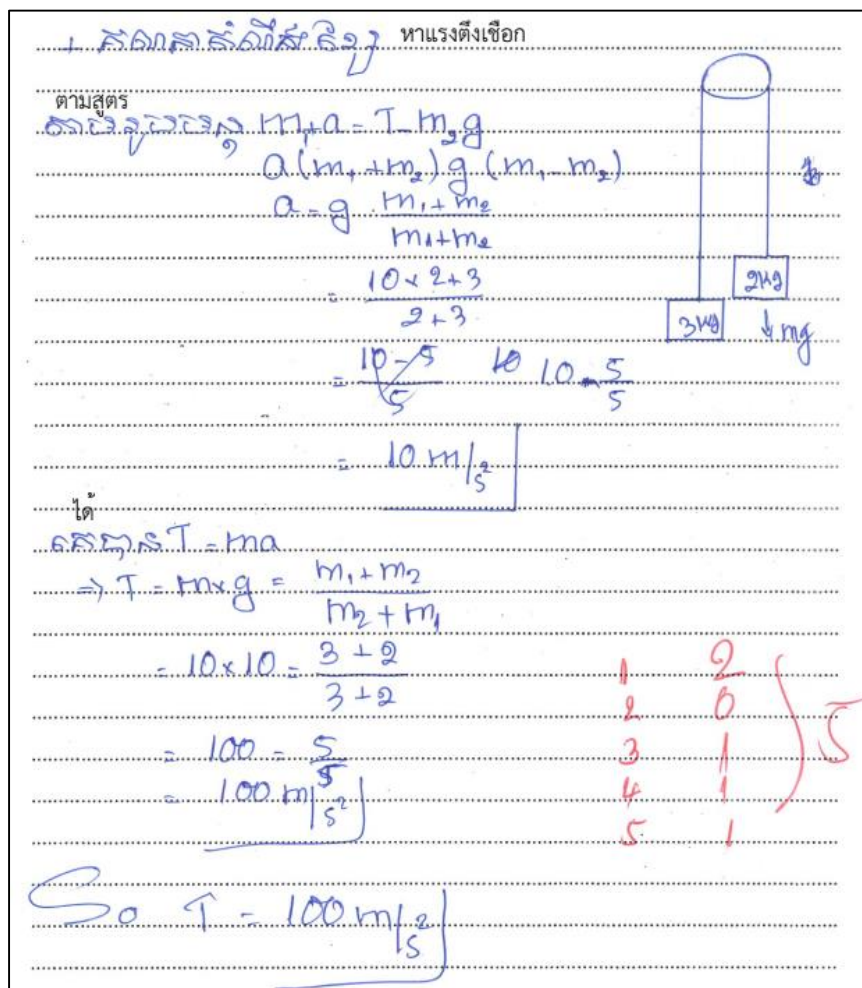 + គណនាតំណឹងខ្សែ หาแรงตึงเชือก
ตามสูตร
តាមរូបមន្ត m₁+a = T - m₂g
a(m₁+m₂) g (m₁-m₂)
a = g . m₁+m₂ / m₁+m₂
= 10 × 2+3 / 2+3
= 10 - 5 / 5 10 - 5/5
= 10 m/s²
ได้
គេបាន T = ma
⇒ T = m×g = m₁+m₂ / m₂+m₁
= 10×10 = 3+2 / 3+2
= 100 = 5/5
= 100 m/s²
So T = 100 m/s²
2kg
3kg
↓ mg
1 2
2 0
3 1
4 1
5 1
5